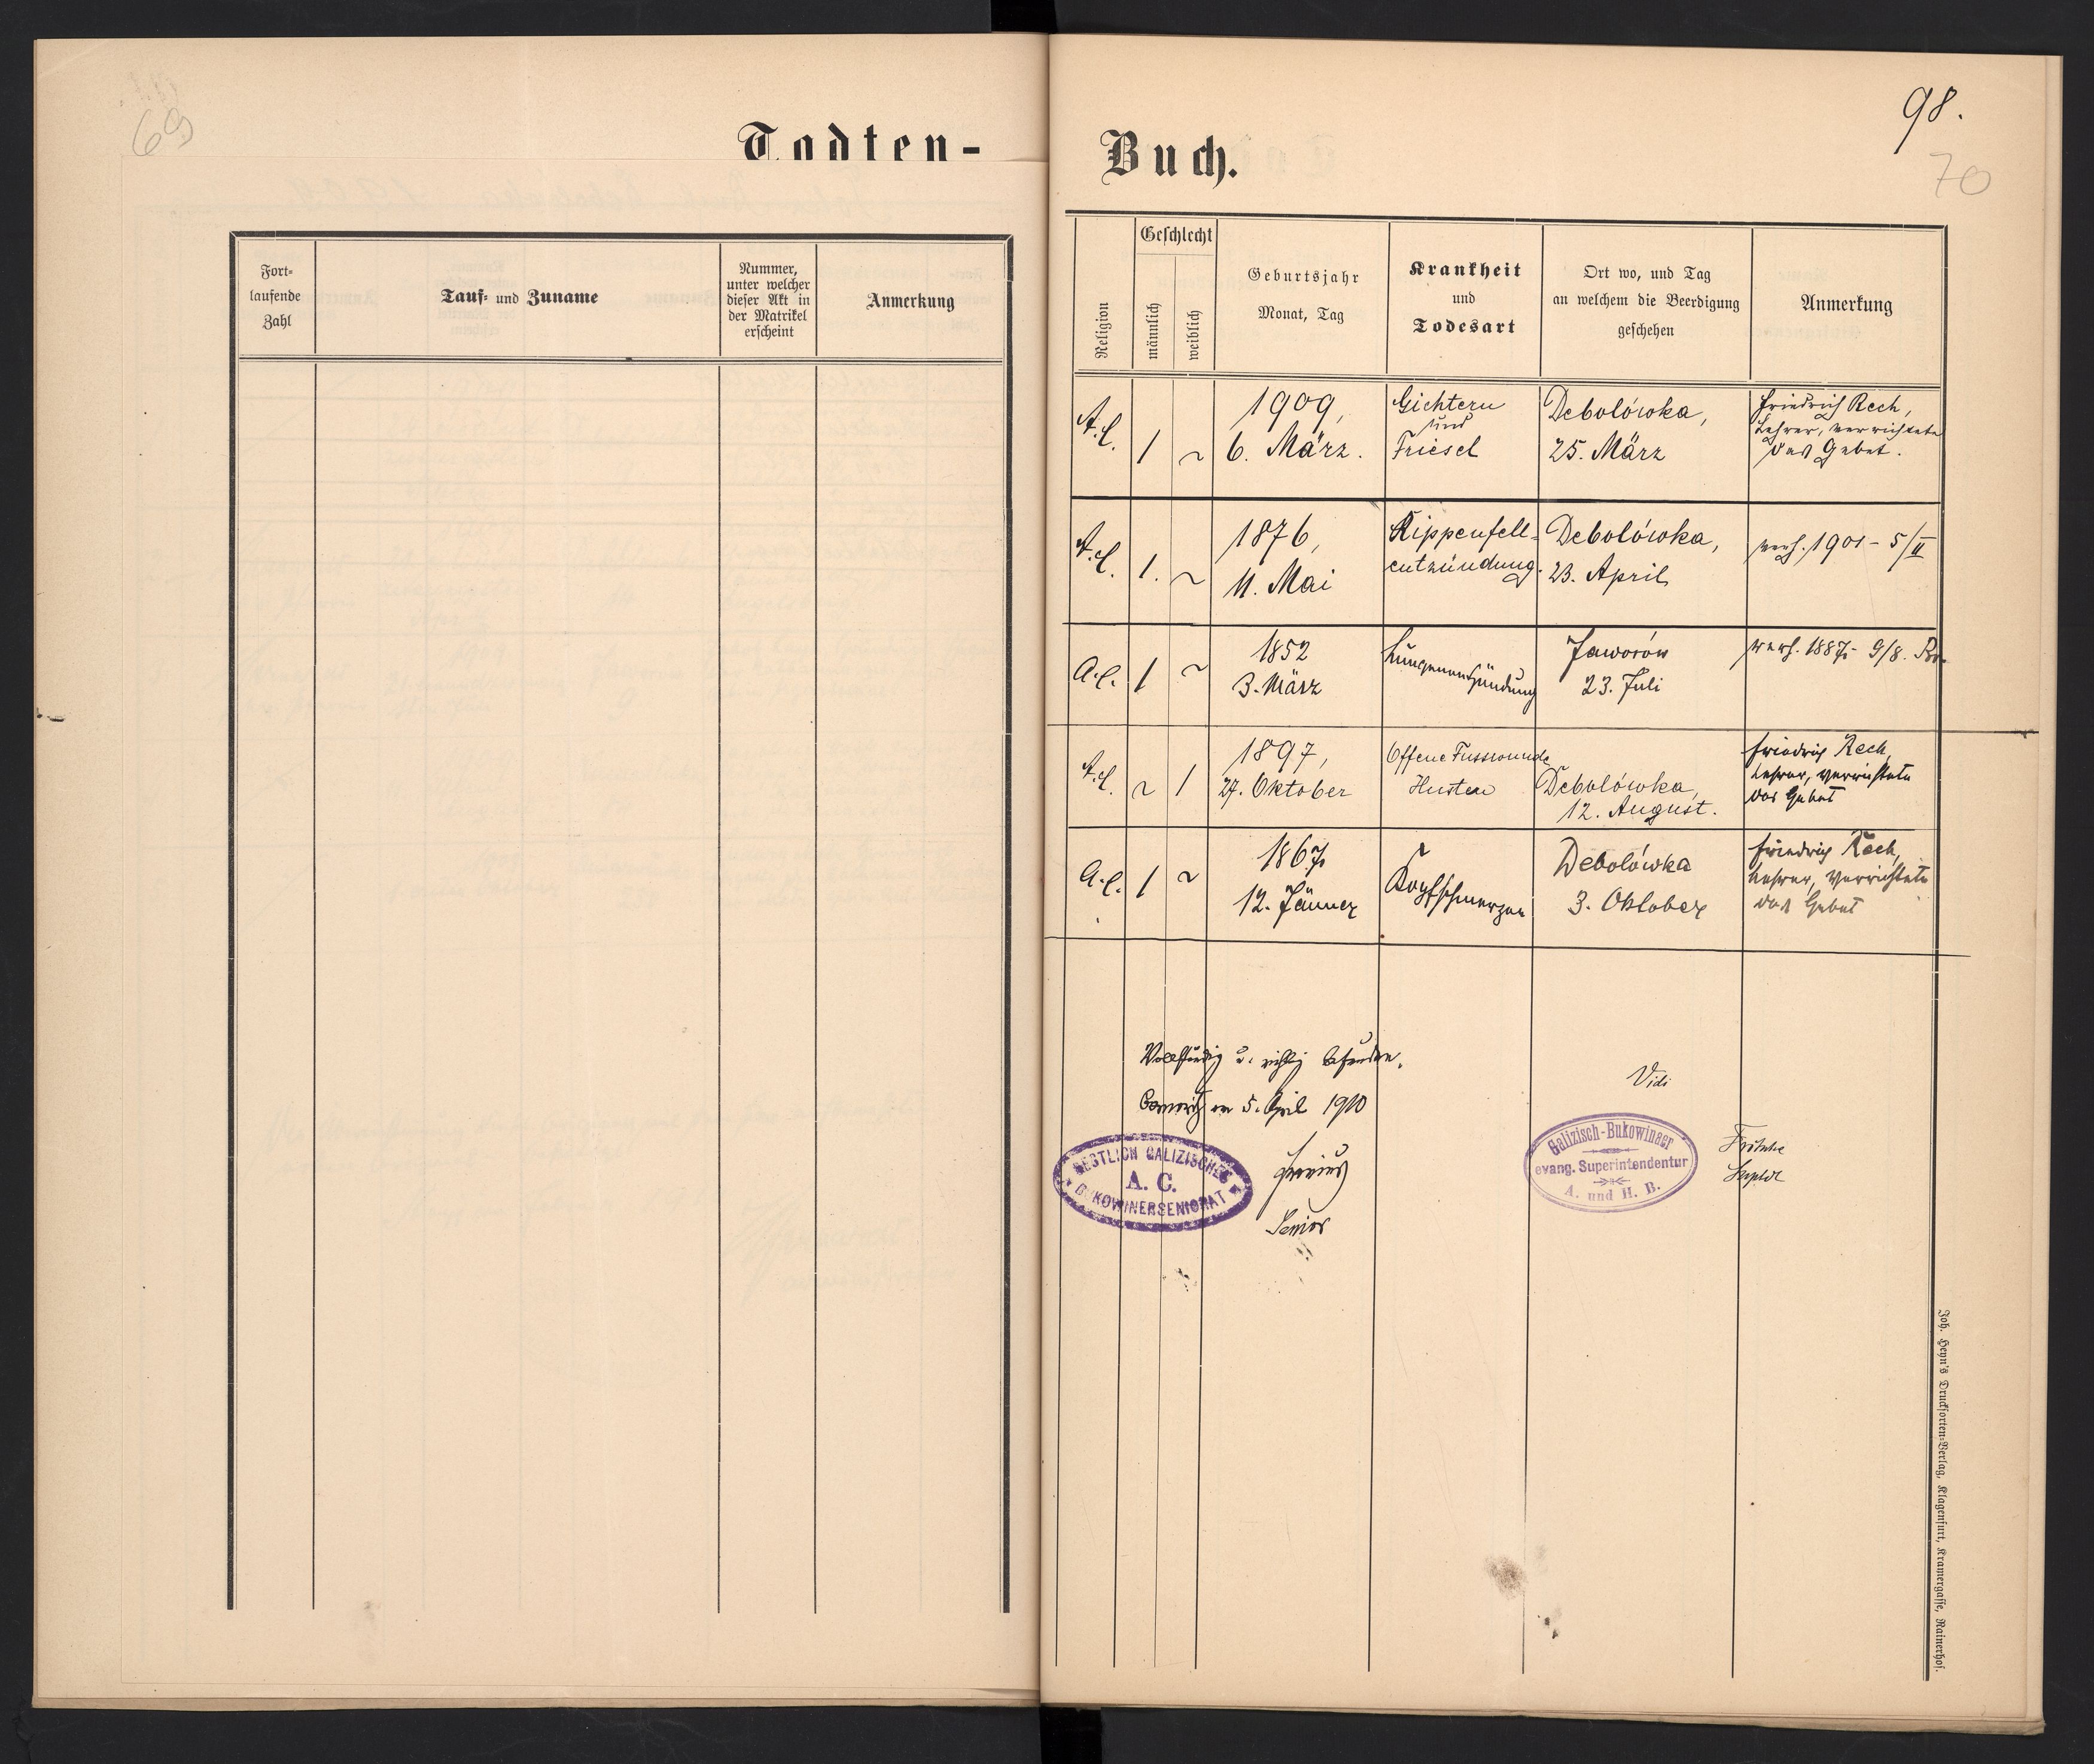 69
Todten-
Fort-
laufende
Zahl
Tauf- und Zuname
Nummer,
unter welcher
dieser Akt in
der Matrikel
erscheint
Anmerkung
98.
70
Buch.
Religion
Geschlecht
männlich
weiblich
Geburtsjahr
Monat, Tag
Krankheit
und
Todesart
Ort wo, und Tag
an welchem die Beerdigung
geschehen
Anmerkung
A.C. 1 ~
1909,
6. März.
Gichtern
und
Friesel
Debolówka,
25. März
Friedrich Rech,
Lehrer, verrichtete
das Gebet.
A.C. 1. ~
1876,
11. Mai
Rippenfell-
entzündung.
Debolówka,
23. April
verh. 1901 - 5/II
A.C. 1 ~
1852
3. März
Lungenentzündung
Jaworów
23. Juli
verh. 1887 - 9/8.
A.C. ~ 1
1897,
27. Oktober
Offene Fusswunde
Husten
Debolówka,
12. August.
Friedrich Rech,
Lehrer, verrichtete
das Gebet
A.C. 1 ~
1867
12. Jänner
Kopfschmerzen
Debolówka
3. Oktober
Friedrich Rech,
Lehrer, verrichtete
das Gebet
Vollständig u. richtig befunden.
5. April 1910
Senior
ESTLICH GALIZISCHES
A. C.
BUKOWINERSENIORAT
Vidi
Galizisch-Bukowinaer
evang. Superintendentur
A. und H. B.
Joh. Heyn's Drucksorten-Verlag, Klagenfurt, Kramergasse, Rainerhof.